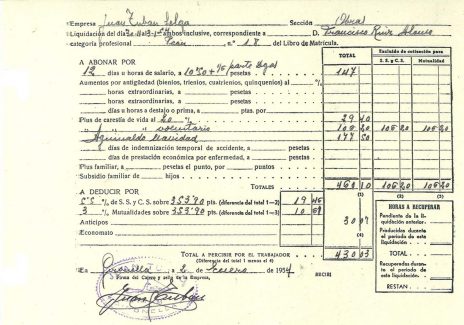 Empresa Juan Zuban Selga Sección Obras
Liquidación del 30 al 31 ambos inclusive, correspondiente a D. Francisco Ruiz Alonso
categoría profesional Peon n.º 18 del Libro de Matrícula.
A ABONAR POR TOTAL Excluido de cotización para
S. S. y C. S. Mutualidad
12 días u horas de salario, a 10'50 + 1/6 parte pesetas 147
Aumentos por antigüedad (bienios, trienios, cuatrienios, quinquenios) al %
horas extraordinarias, a pesetas
horas extraordinarias, a pesetas
días u horas a destajo o prima, a ptas. por
Plus de carestía de vida al 20 % 29 40
" " voluntario 105 20 105 20 105 20
Aguinaldo Navidad 177 50
días de indemnización temporal de accidente, a pesetas
días de prestación económica por enfermedad, a pesetas
Plus familiar, a pesetas el punto, por puntos
Subsidio familiar de hijos
TOTALES 105 20 105 20
(1) (2) (3)
A DEDUCIR POR
5'5 % de S.S. y C. S. sobre 353'90 pts. (diferencia del total 1—2) 19 46
3 % Mutualidades sobre 353'90 pts. (diferencia del total 1—3)
Anticipos
Economato
30 07
(4)
HORAS A RECUPERAR
Pendiente de la liquidación anterior.
Producidas durante el período de esta liquidación
TOTAL
Recuperadas durante el período
RESTAN
TOTAL A PERCIBIR POR EL TRABAJADOR 430 03
(Diferencia del total 1 menos el 4)
En a 2 de Enero de 1954 RECIBÍ
Firma del Cajero y sello de la Empresa,